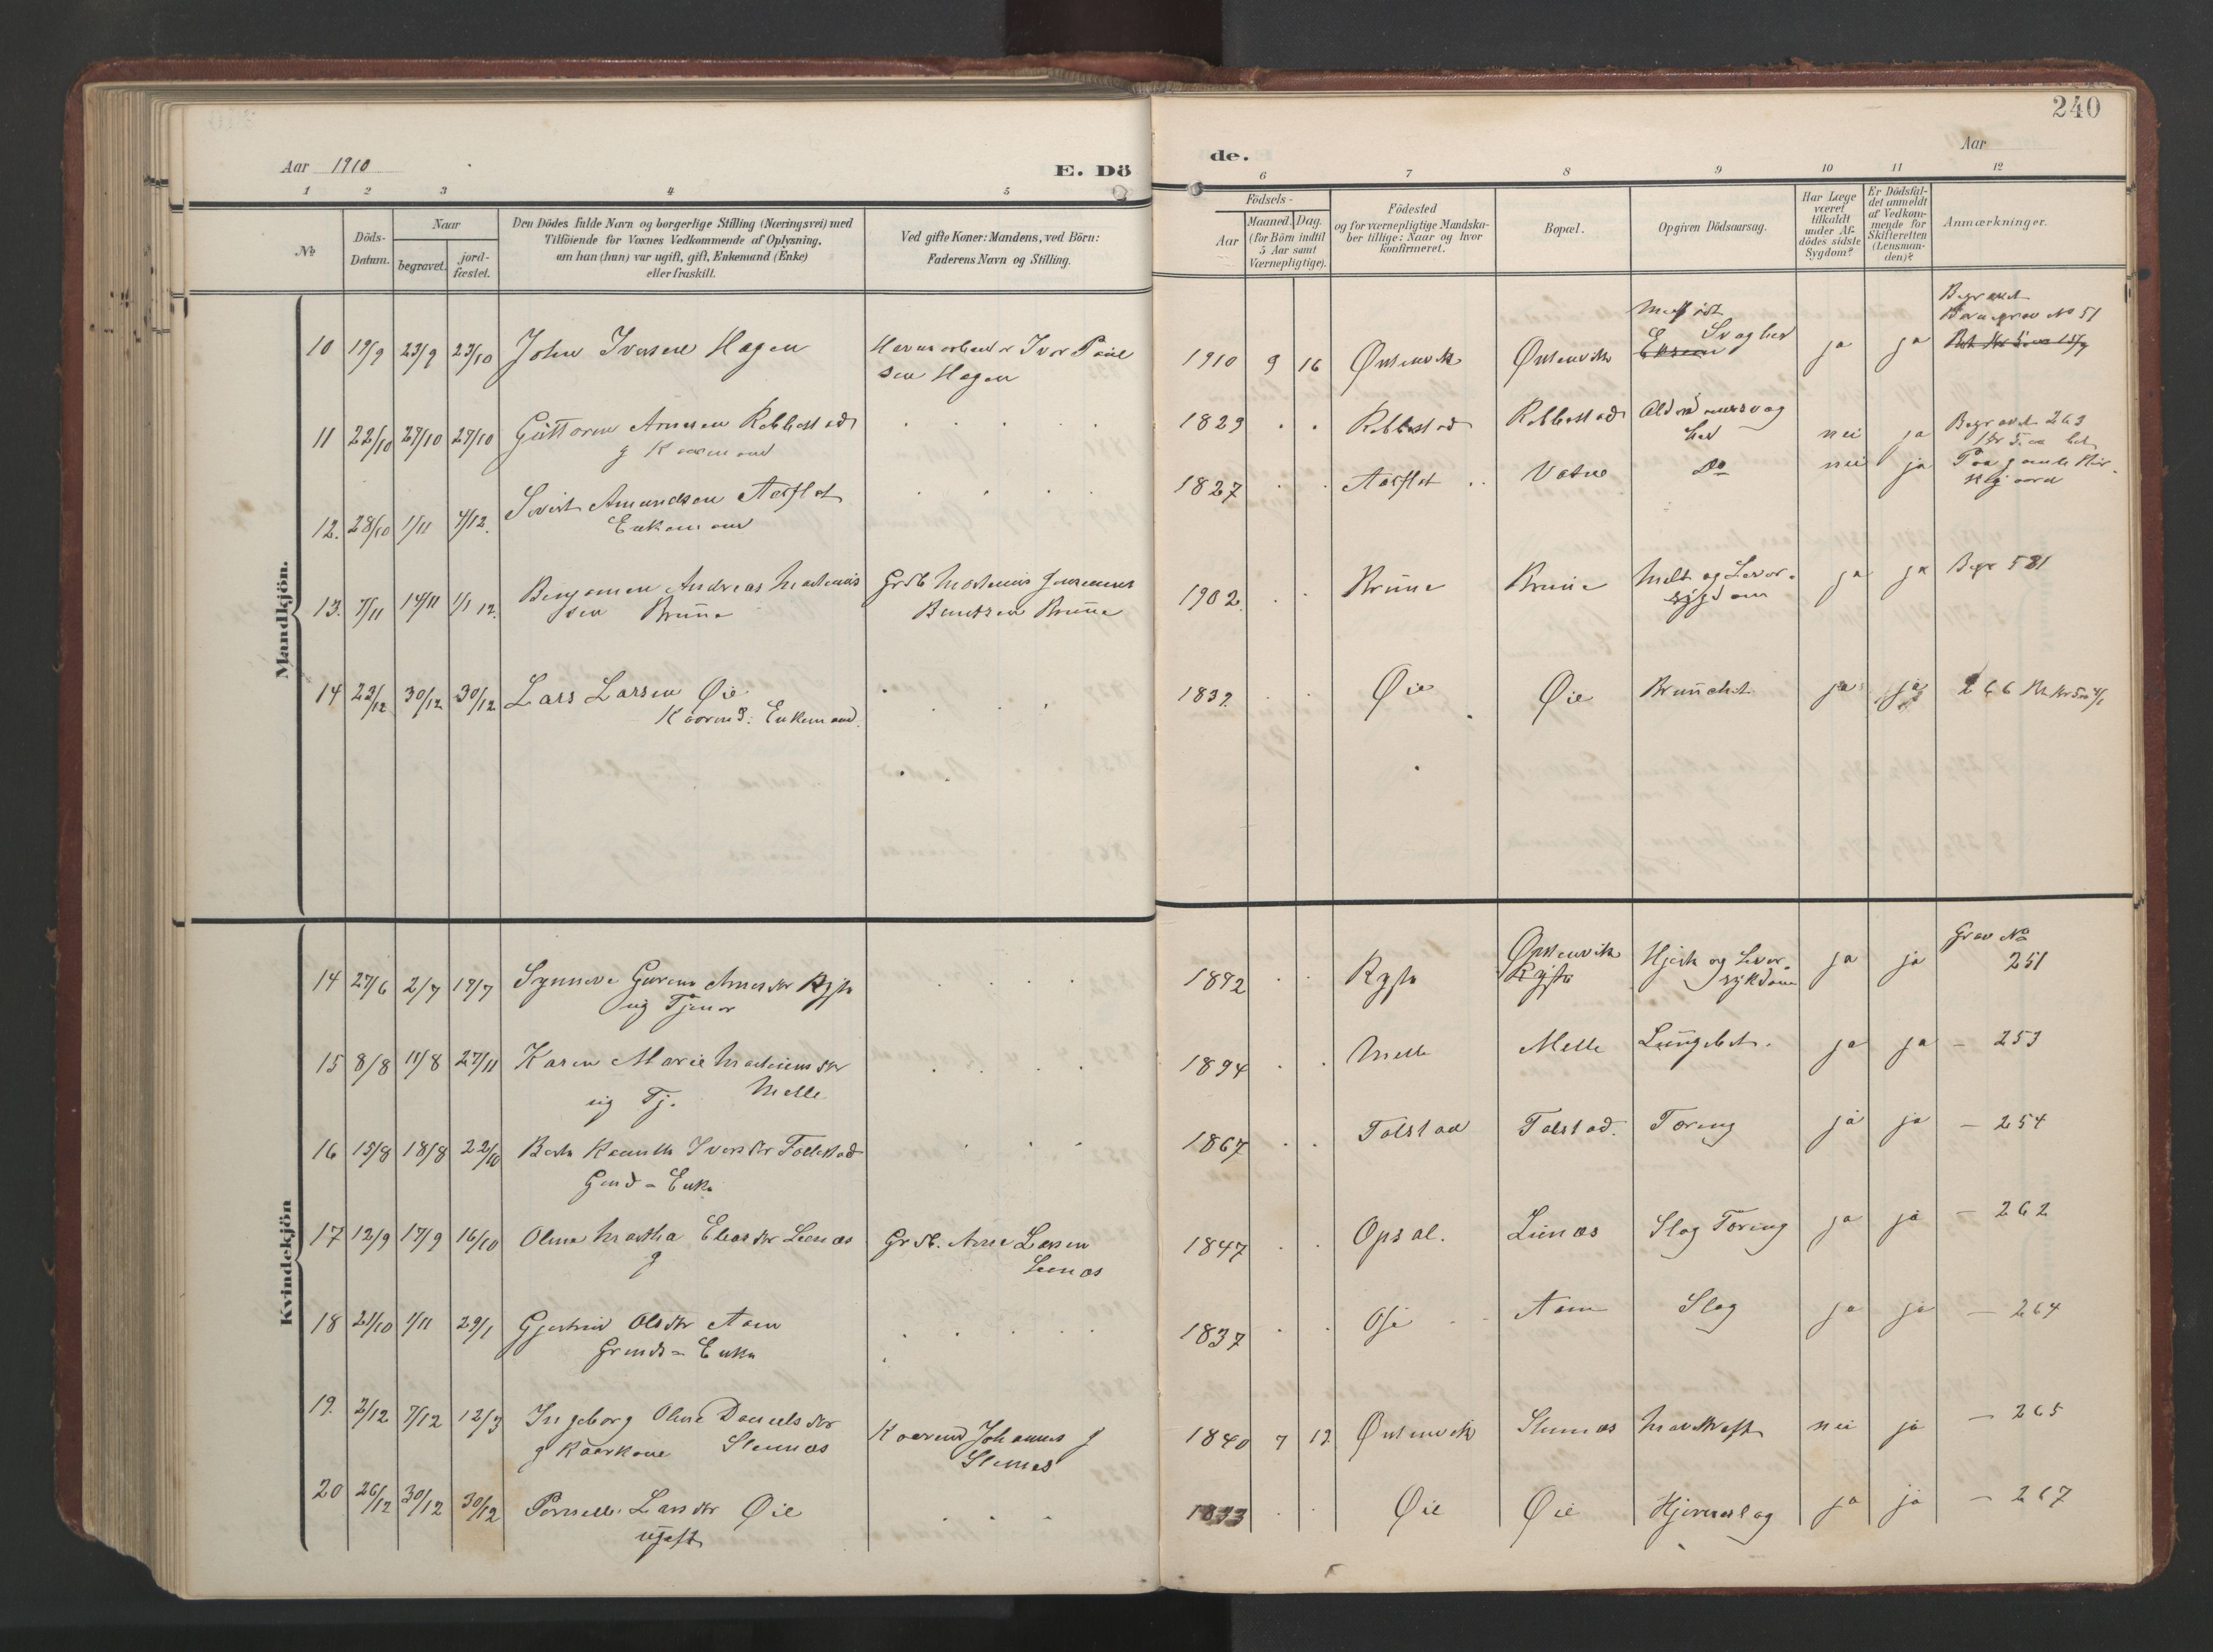 240
Aar 1910
E. Dö
de.
Aar
1 2 3 4 5
6 7 8 9 10 11 12
No
Döds-
Datum.
Naar
begravet.
jord-
fæstet.
Den Dödes fulde Navn og borgerlige Stilling (Næringsvei) med
Tilföiende for Voxnes Vedkommende af Oplysning,
om han (hun) var ugift, gift, Enkemand (Enke)
eller fraskilt.
Ved gifte Koner: Mandens, ved Börn:
Faderens Navn og Stilling.
Födsels-
Aar
Maaned. Dag.
(for Börn indtil
5 Aar samt
Værnepligtige).
Födested
og for værnepligtige Mandska-
ber tillige: Naar og hvor
konfirmeret.
Bopæl.
Opgiven Dödsaarsag.
Har Læge
været
tilkaldt
under Af-
dödes sidste
Sygdom?
Er Dödsfal-
det anmeldt
af Vedkom-
mende for
Skifteretten
(Lensman-
den)?
Anmærkninger.
Mandkjön.
10 19/9 23/9 23/10 John Iversen Hagen
Havnearbeider Iver Paul
sen Hagen
1910 9 16 Ørstenvik Ørstenvik
Svaghed
ja ja
Begravet
Barnegrav No 51
11 22/10 27/10 27/10 Guttorm Arnesen Rebbestad
g Kaarmand
1829 Rebbestad Rebbestad Alderdomssvag
hed
nei ja
Begravet 263
12. 28/10 1/11 4/12. Sivert Amundsen Aasflot
Enkemand
1827 Aasflot Vatne Do nei ja
Paa gamle Kir-
kegaard
13. 7/11 14/11 1/1 12. Benjamin Andreas Martinus
sen Brune
Grdb Martinus Jensenus
Bentsen Brune
1902. Brune Brune Milt og Lever-
sygdom
ja ja Begr 581
14 23/12 30/12 30/12 Lars Larsen Øie
Kaarmd: Enkemand.
1832 Øie Øie Brunchit ja ja 266
Kvindekjön
14 27/6 2/7 17/7 Synneve Gurine Arnesdtr Rysta
ug Tjener
1892 Rysta
Ørstenvik
Rysta
Hjerte og Lever-
sykdom
ja ja
Grav No
251
15 8/8 11/8 27/11 Karen Marie Martinusdtr
ug Tj. Melle
1894 Melle Melle Lungebet. ja ja - 253
16 15/8 18/8 22/10 Berte Kanutte Iversdtr Follestad
Gmd - Enke
1867 Folstad Folstad. Tæring ja ja - 254
17 12/9 17/9 16/10 Oline Martha Eliasdtr Leenæs
g
Grdb. Arne Larsen
Leenæs
1847 Opsal. Linæs Slag Tæring ja ja - 262
18 21/10 1/11 29/1 Gjertrud Olsdtr Aam
Grmds - Enke
1837 Ose Aam Slag ja ja - 264
19. 2/12 7/12 12/3 Ingeborg Oline Danielsdtr
g Kaarkone Steinnæs
Kaarmd Johannes J
Steinnæs
1840 7 12 Ørstenvik Steinnæs Mavekræft nei ja - 265
20 26/12 30/12 30/12 Pernelle Larsdtr Øie
ugift
1833 Øie Øie Hjerneslag ja ja - 267